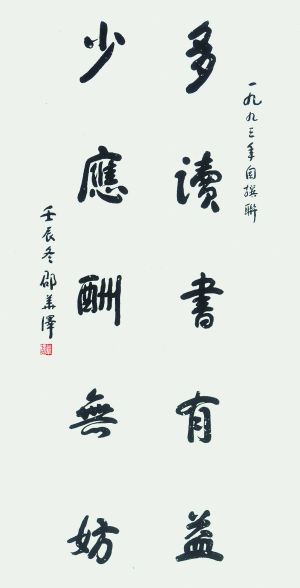 一九九三年自撰联
多讀書有益
少應酬無妨
壬辰冬邵華澤